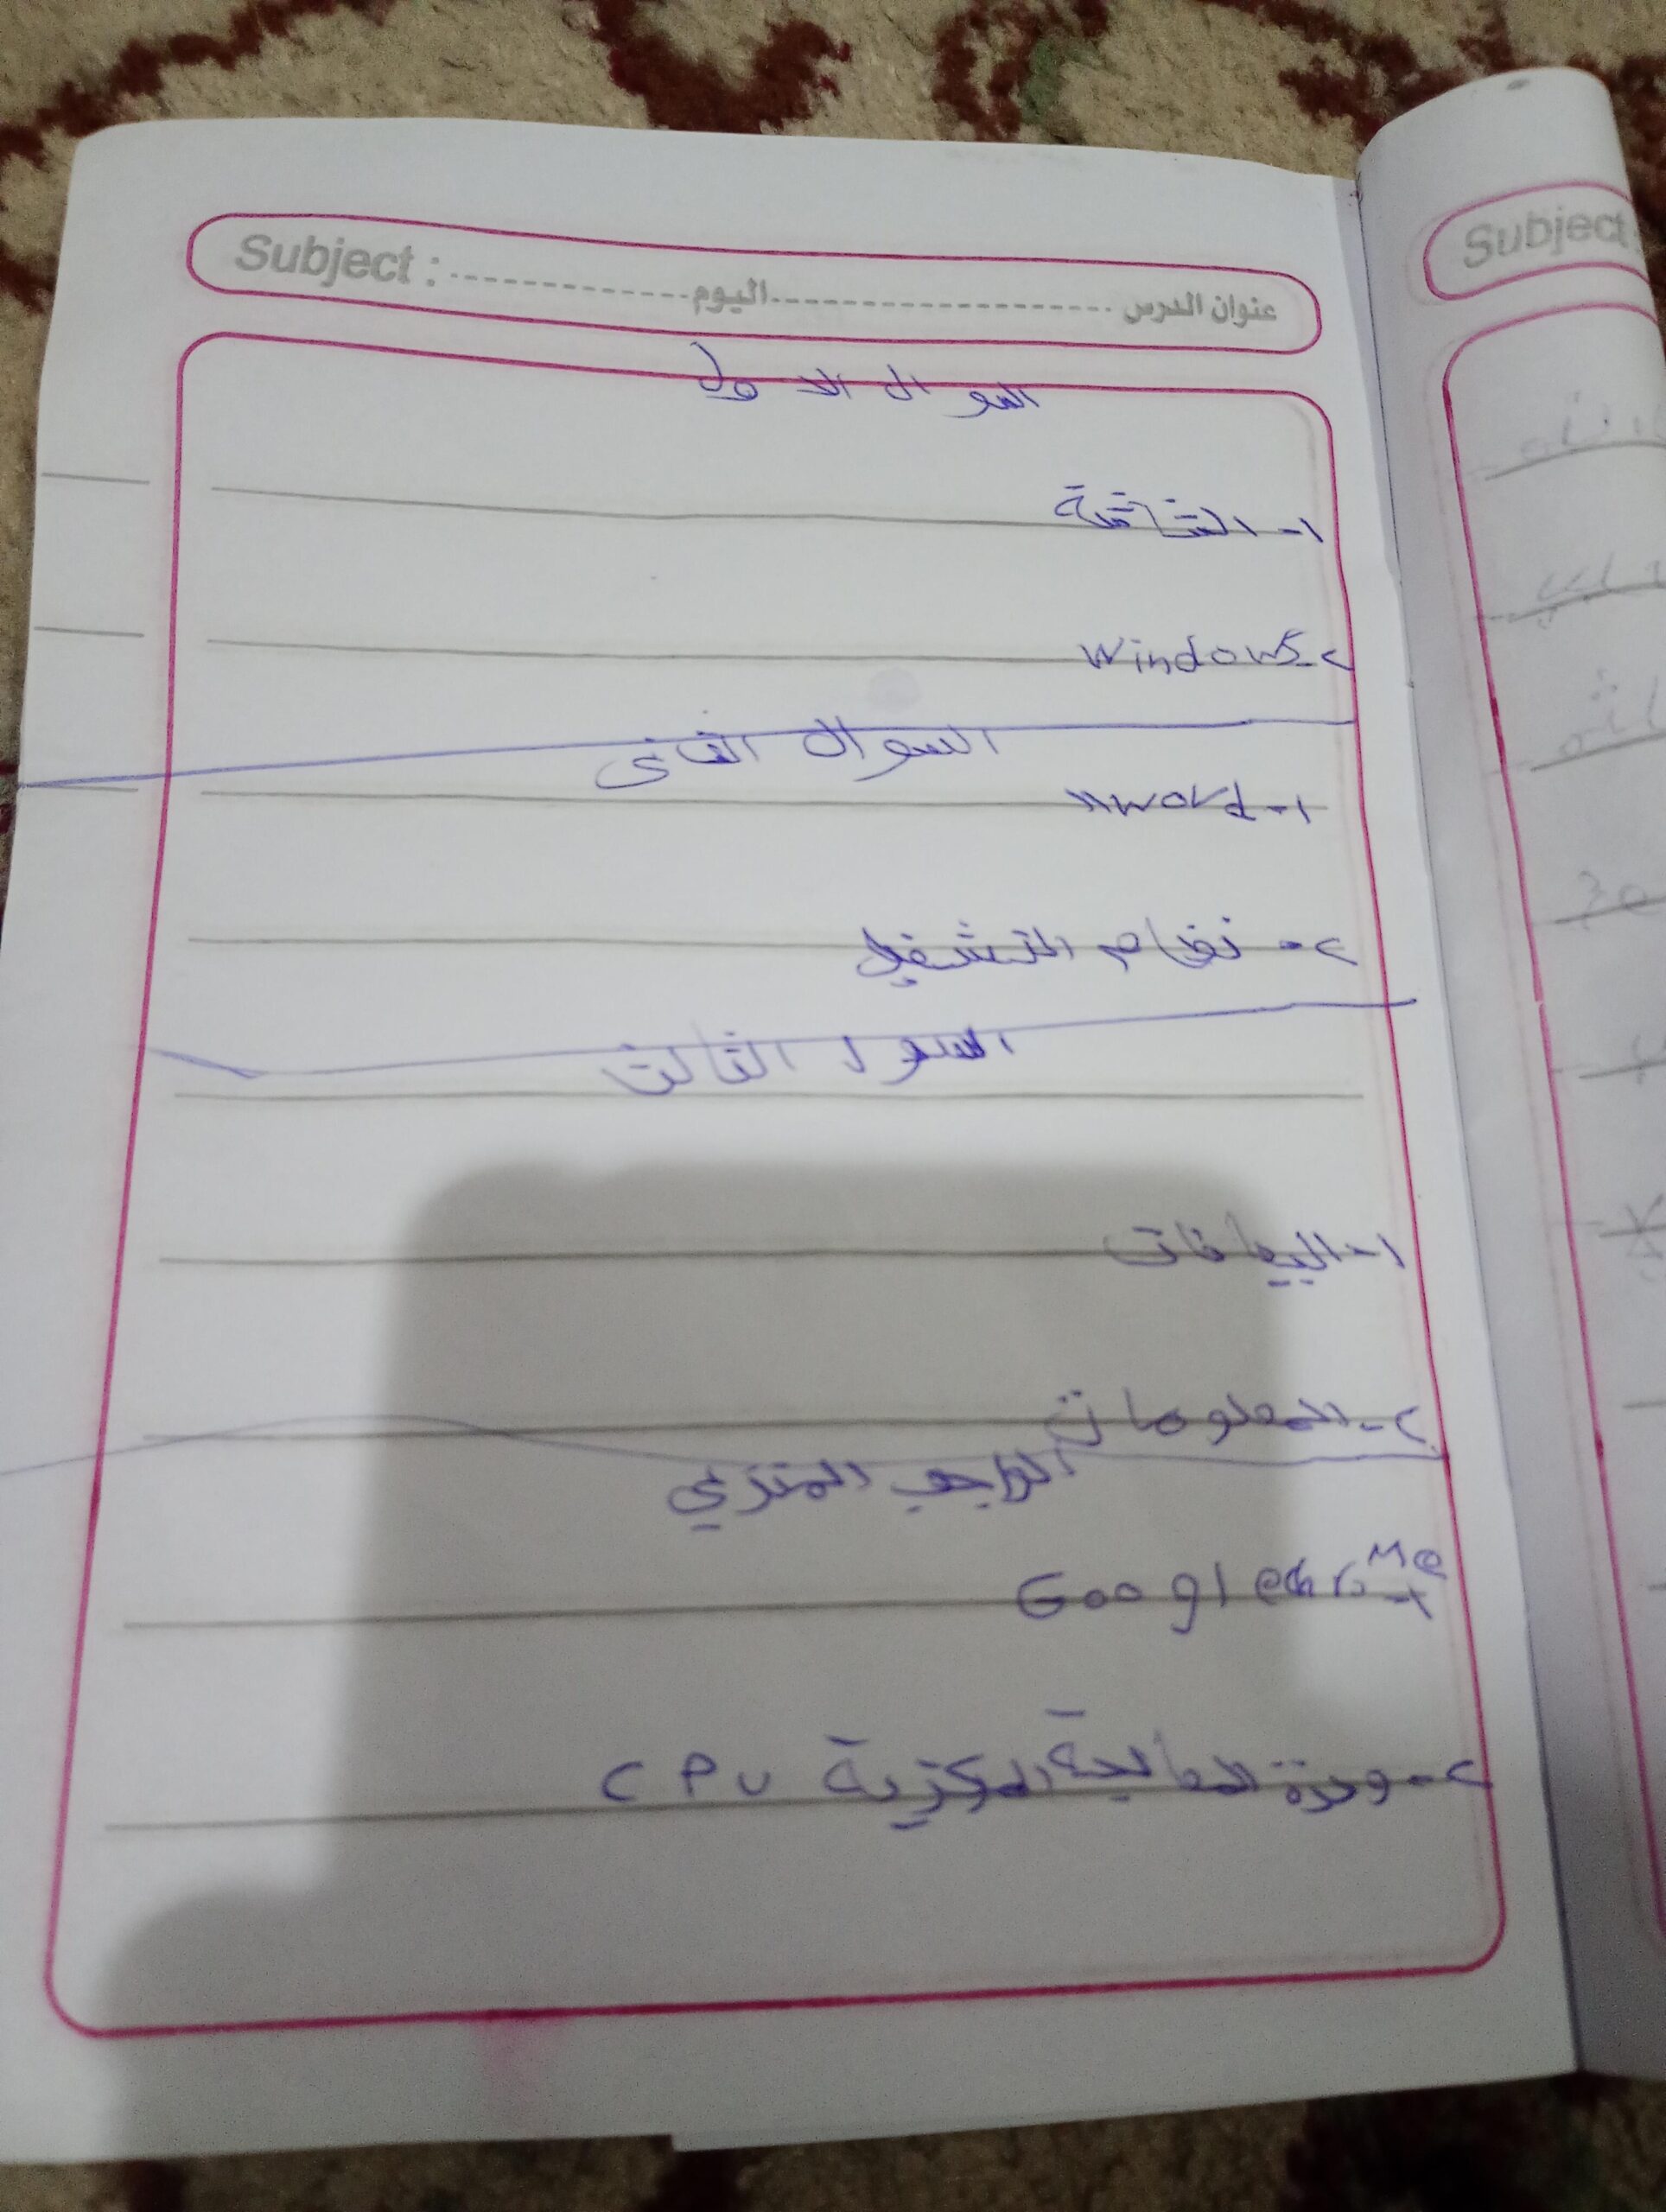 Subject : اليوم عنوان الدرس
السوال الاول
١- الشاشة
٢- Windows
السوال الثانى
١- word
٢- نظام التشغيل
السول الثالث
١- البيانات
٢- المعلومات
الواجب المنزلي
١- Google chrome
٢- وحدة المعالجة المركزية CPU
Subject